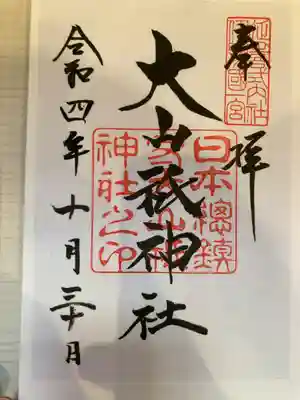 奉拝
日本總鎮
守大山祇
神社之印
大山祇神社
令和四年十月三十日